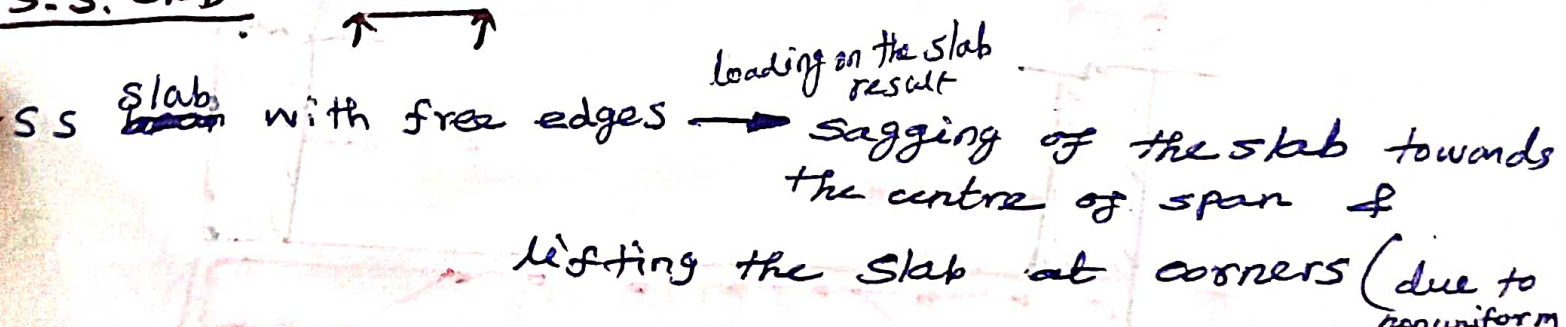 SS slab with free edges → loading on the slab result
sagging of the slab towards
the centre of span &
lifting the slab at corners (due to
nonuniform